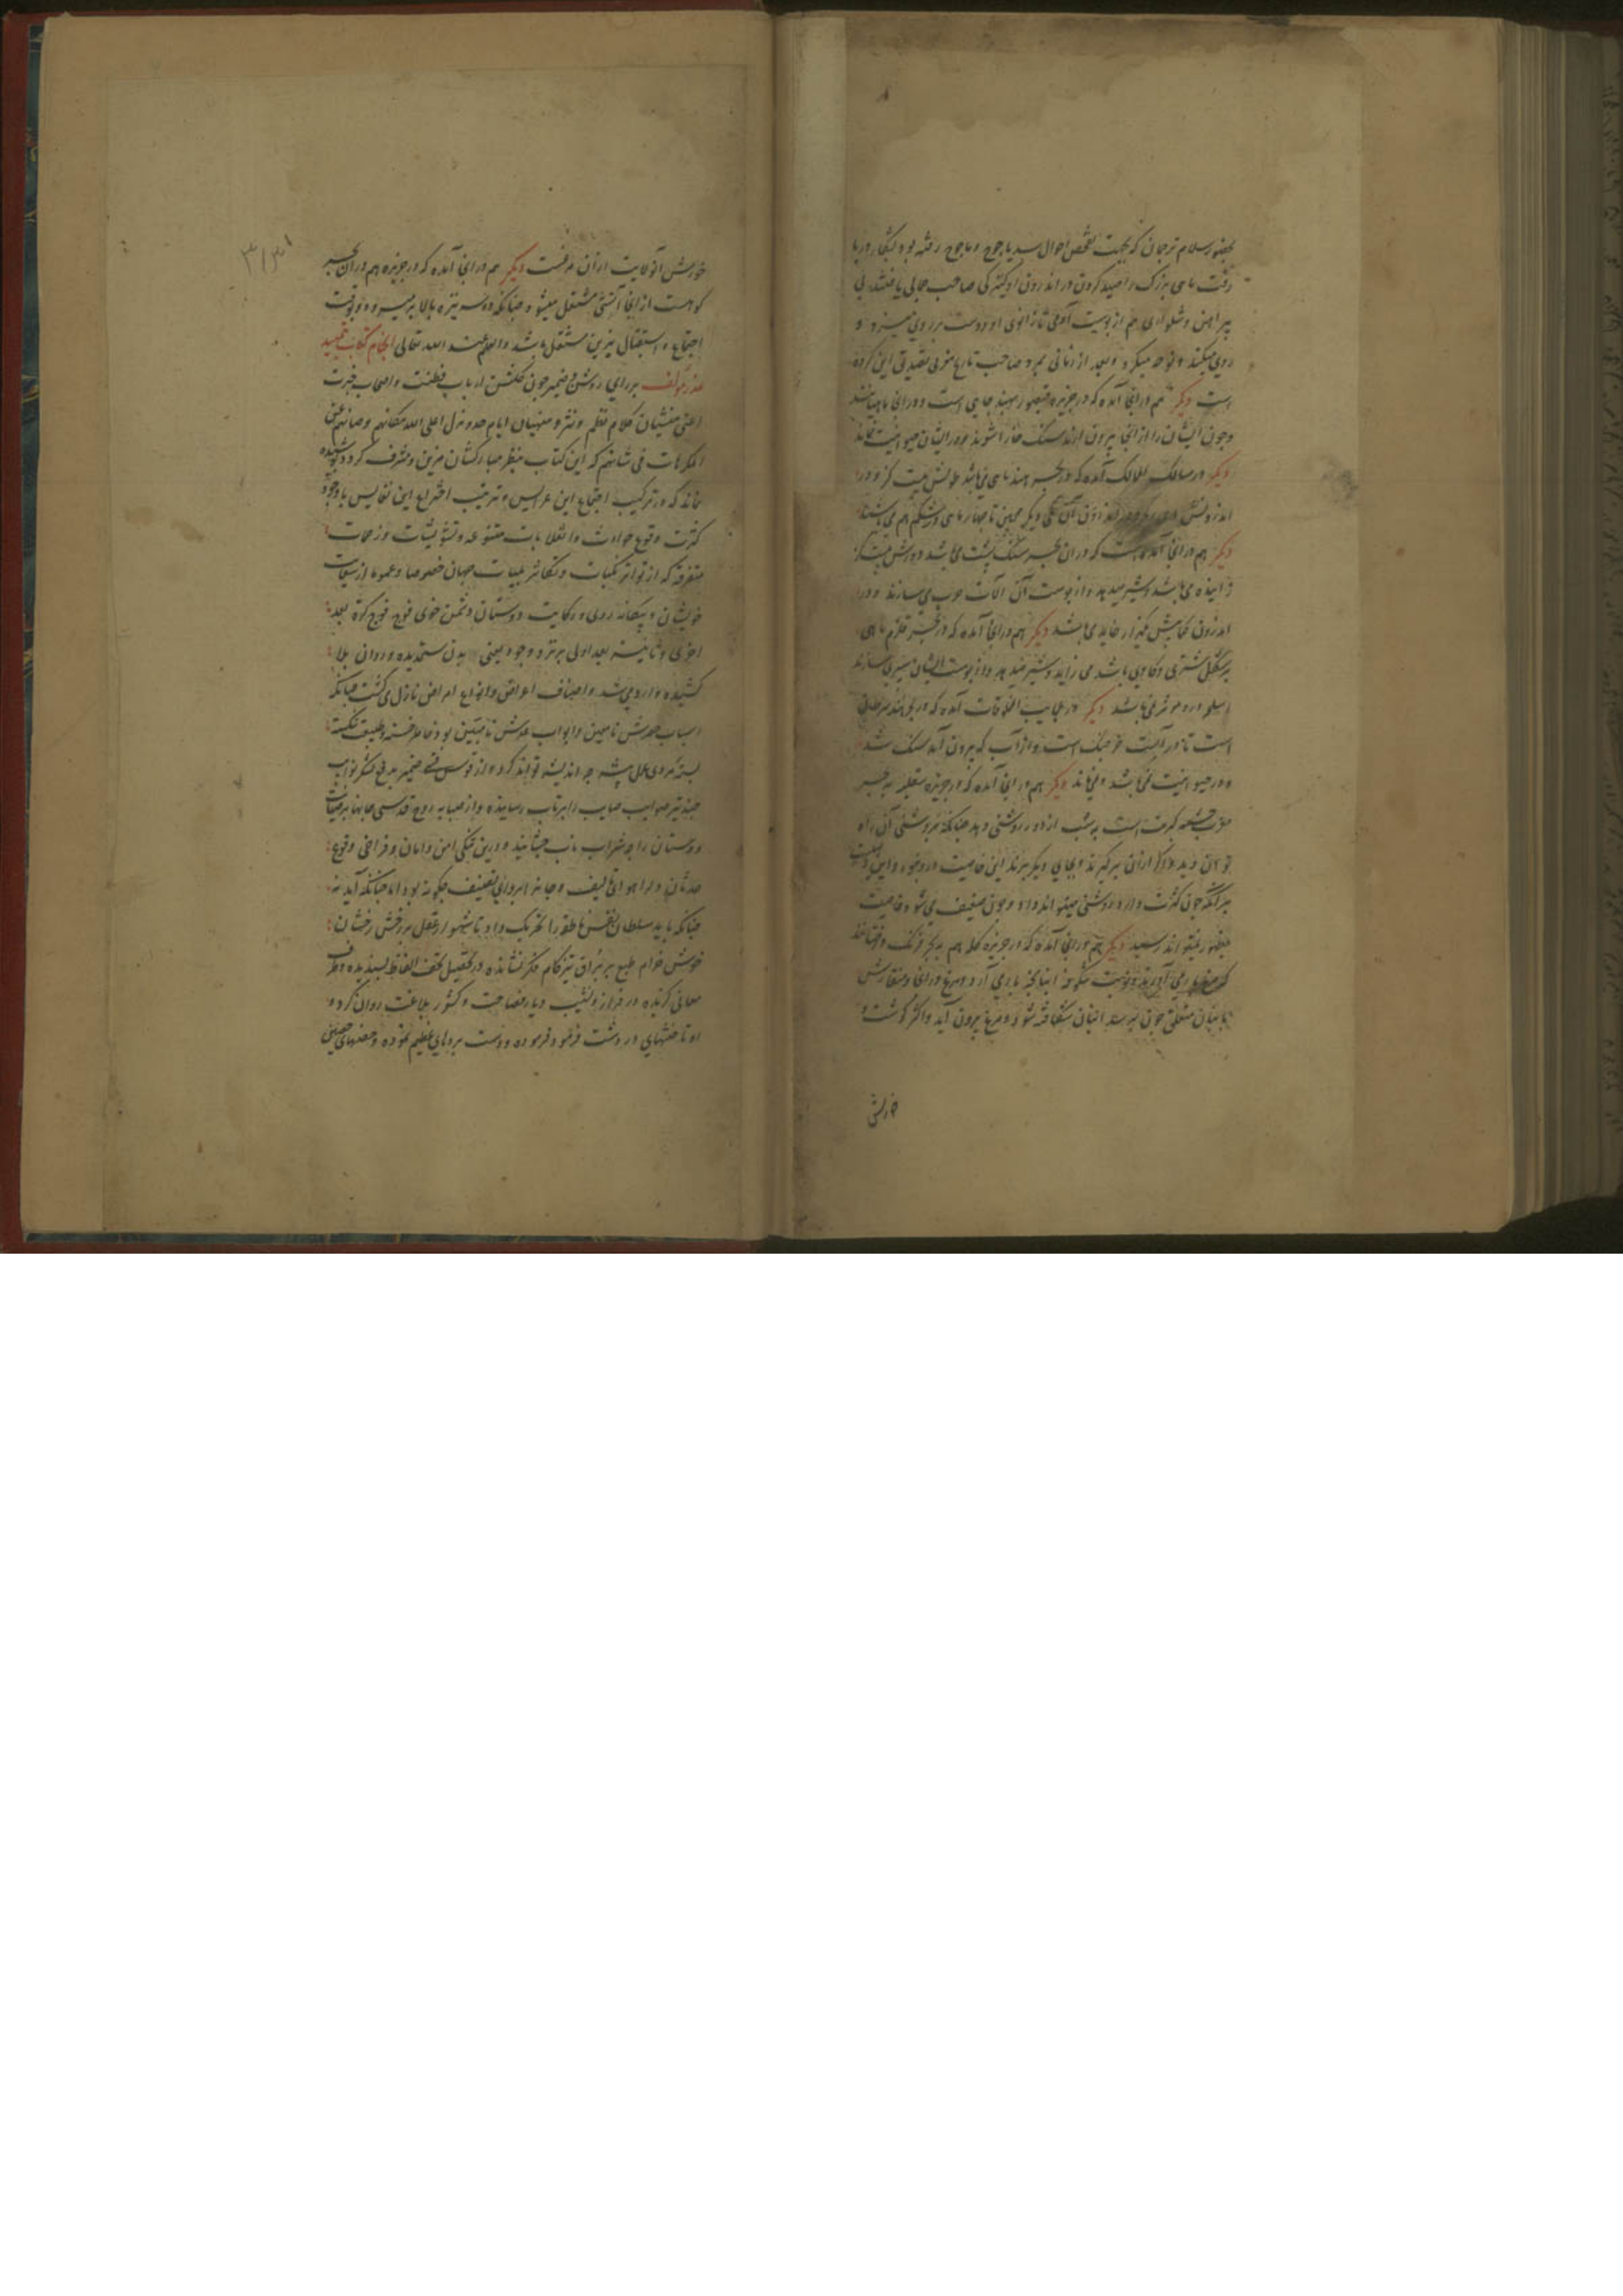 بحضور سلام ترجمان که بجهت تفحص احوال سد یاجوج و ماجوج رفته بود بشکار دریا
رفت ماهی بزرگ را صید کردن در اندرون او کنیزکی صاحب جمالی یافتند بی
پیراهن و شلواری هم از پوست آدمی تا زانوی او و دست بر روی میزد و
روی میکند و نوحه میکرد و بعد از زمانی بمرد صاحب تاریخ مغرب تصدیق این کرده
است دیگر هم در آنجا آمده که در جزیره قیصور بهند جایی است و در آنجا ماهیانند
و چون ایشان را از آنجا بیرون آرند سنگ خارا شوند و در ایشان حیوانیت نماند
دیگر در مسالک الممالک آمده که در بحر هند ماهی می باشد طولش بیست گز و در
اندرونش دیگر همچنین تا چهار ماهی در شکم هم می باشند
دیگر هم در آنجا آمده است که در آن بحر سنگ پشت می باشد دورش بیست گز
زاینده می باشد و شیر میدهد و از پوست آن آلات حرب می سازند و در
اندرون کمابیش هزار خایه می باشد دیگر هم در آنجا آمده که در بحر قلزم ماهی
بر شکل شتری و گاوی باشد می زاید و شیر میدهد و از پوست ایشان سپر می سازند
اسلحه درو موثر نمی باشد دیگر در عجایب المخلوقات آمده که در بحر هند سرطانی
است تا در آبست خرچنگ است و از آب که بیرون آمد سنگ شد
و در حیوانیت نمی باشد و نمی ماند دیگر هم در آنجا آمده که در جزیره سقلیه ببحر
مغرب چشمه کبریت است به شب از دور روشنی دهد چنانکه بروشنی آن راه
توان دید و اگر از آن برگیرند و بجای دیگر برند این خاصیت درو نبود و این
بر آنکه چون کثرت دارد روشنی میتواند داد و چون ضعیف می شود خاصیت
بظهور نمیتواند رسید دیگر هم در آنجا آمده که در جزیره کله هم ببحر فرنگ درختانند
که بار می آورند و نوبت شکوفه انبانچه بار می آرد و مرغ در آنجا و منقارش
بانبان متعلق چون برسد انبان شکافته شود و مرغ بیرون آید و اکثر گوشت و
خورش
خورش آن ولایت از آن مرغست دیگر هم در آنجا آمده که در جزیره هم در آن بحر
کوهست از آنجا آتشی مشتعل میشود چنانکه دو سه نیزه بالا بر میرود و بوقت
اجتماع و استقبال نیرین مشتعل باشد والعلم عند الله تعالی انجام کتاب بتمهید
عذر مؤلف بر رای روشن و ضمیر چون گلشن ارباب فطنت و اصحاب خبرت
اعنی منشیان کلام نظم و نثر و منهیان ایام اعلی الله مکانهم و صانهم عن
المکرهات فی شانهم که این کتاب بنظر مبارکشان مزین و مشرف گردد پوشیده
نماند که در ترکیب اجتماع این عرایس و ترتیب اختراع این نفایس با وجود
کثرت وقوع حوادث و انقلابات متنوعه و تشویشات و زحمات
متفرقه که از تواتر نکبات و تکاثر بلیات جهان خصوصا و عموما از
خویشان و بیگانه روی و رکابت دوستان دشمن خوی فوج فوج کرة بعد
اخری و ثانیة بعد اولی بر وجود یعنی بدن ستمدیده و روان بلا
کشیده وارد می شد و اصناف اعراض و انواع امراض نازل می گشت چنانکه
اسباب نامعین و ابواب نامتبین بود خاطر خسته و طبیعت شکسته
بسته بیشه چه اندیشه تواند کرد و از قوس ضمیر بدفع لشکر نوایب
چند تیر صواب صایب را پرتاب رساند و از صهبای روح قدسی جانها
دوستان را چو شراب ناب چشانید و درین تنگی امن و امان و فراخی وقوع
حدثان و تالیف و تصنیف چگونه بود اما چنانکه آید نه
چنانکه باید سلطان نفس ناطقه را تحریک داد تا شهسوار عقل بر رخش رخشان
خوش خرام طبع بر براق تیز گام فکر نشانده در تحصیل تحف الفاظ پسندیده و طرف
معانی گزیده در فراز و نشیب دیار فصاحت و کشور بلاغت روان کرد و
او تاختنهای در دشت فرمود و دست بردهای عظیم نموده و حصنهای حصین